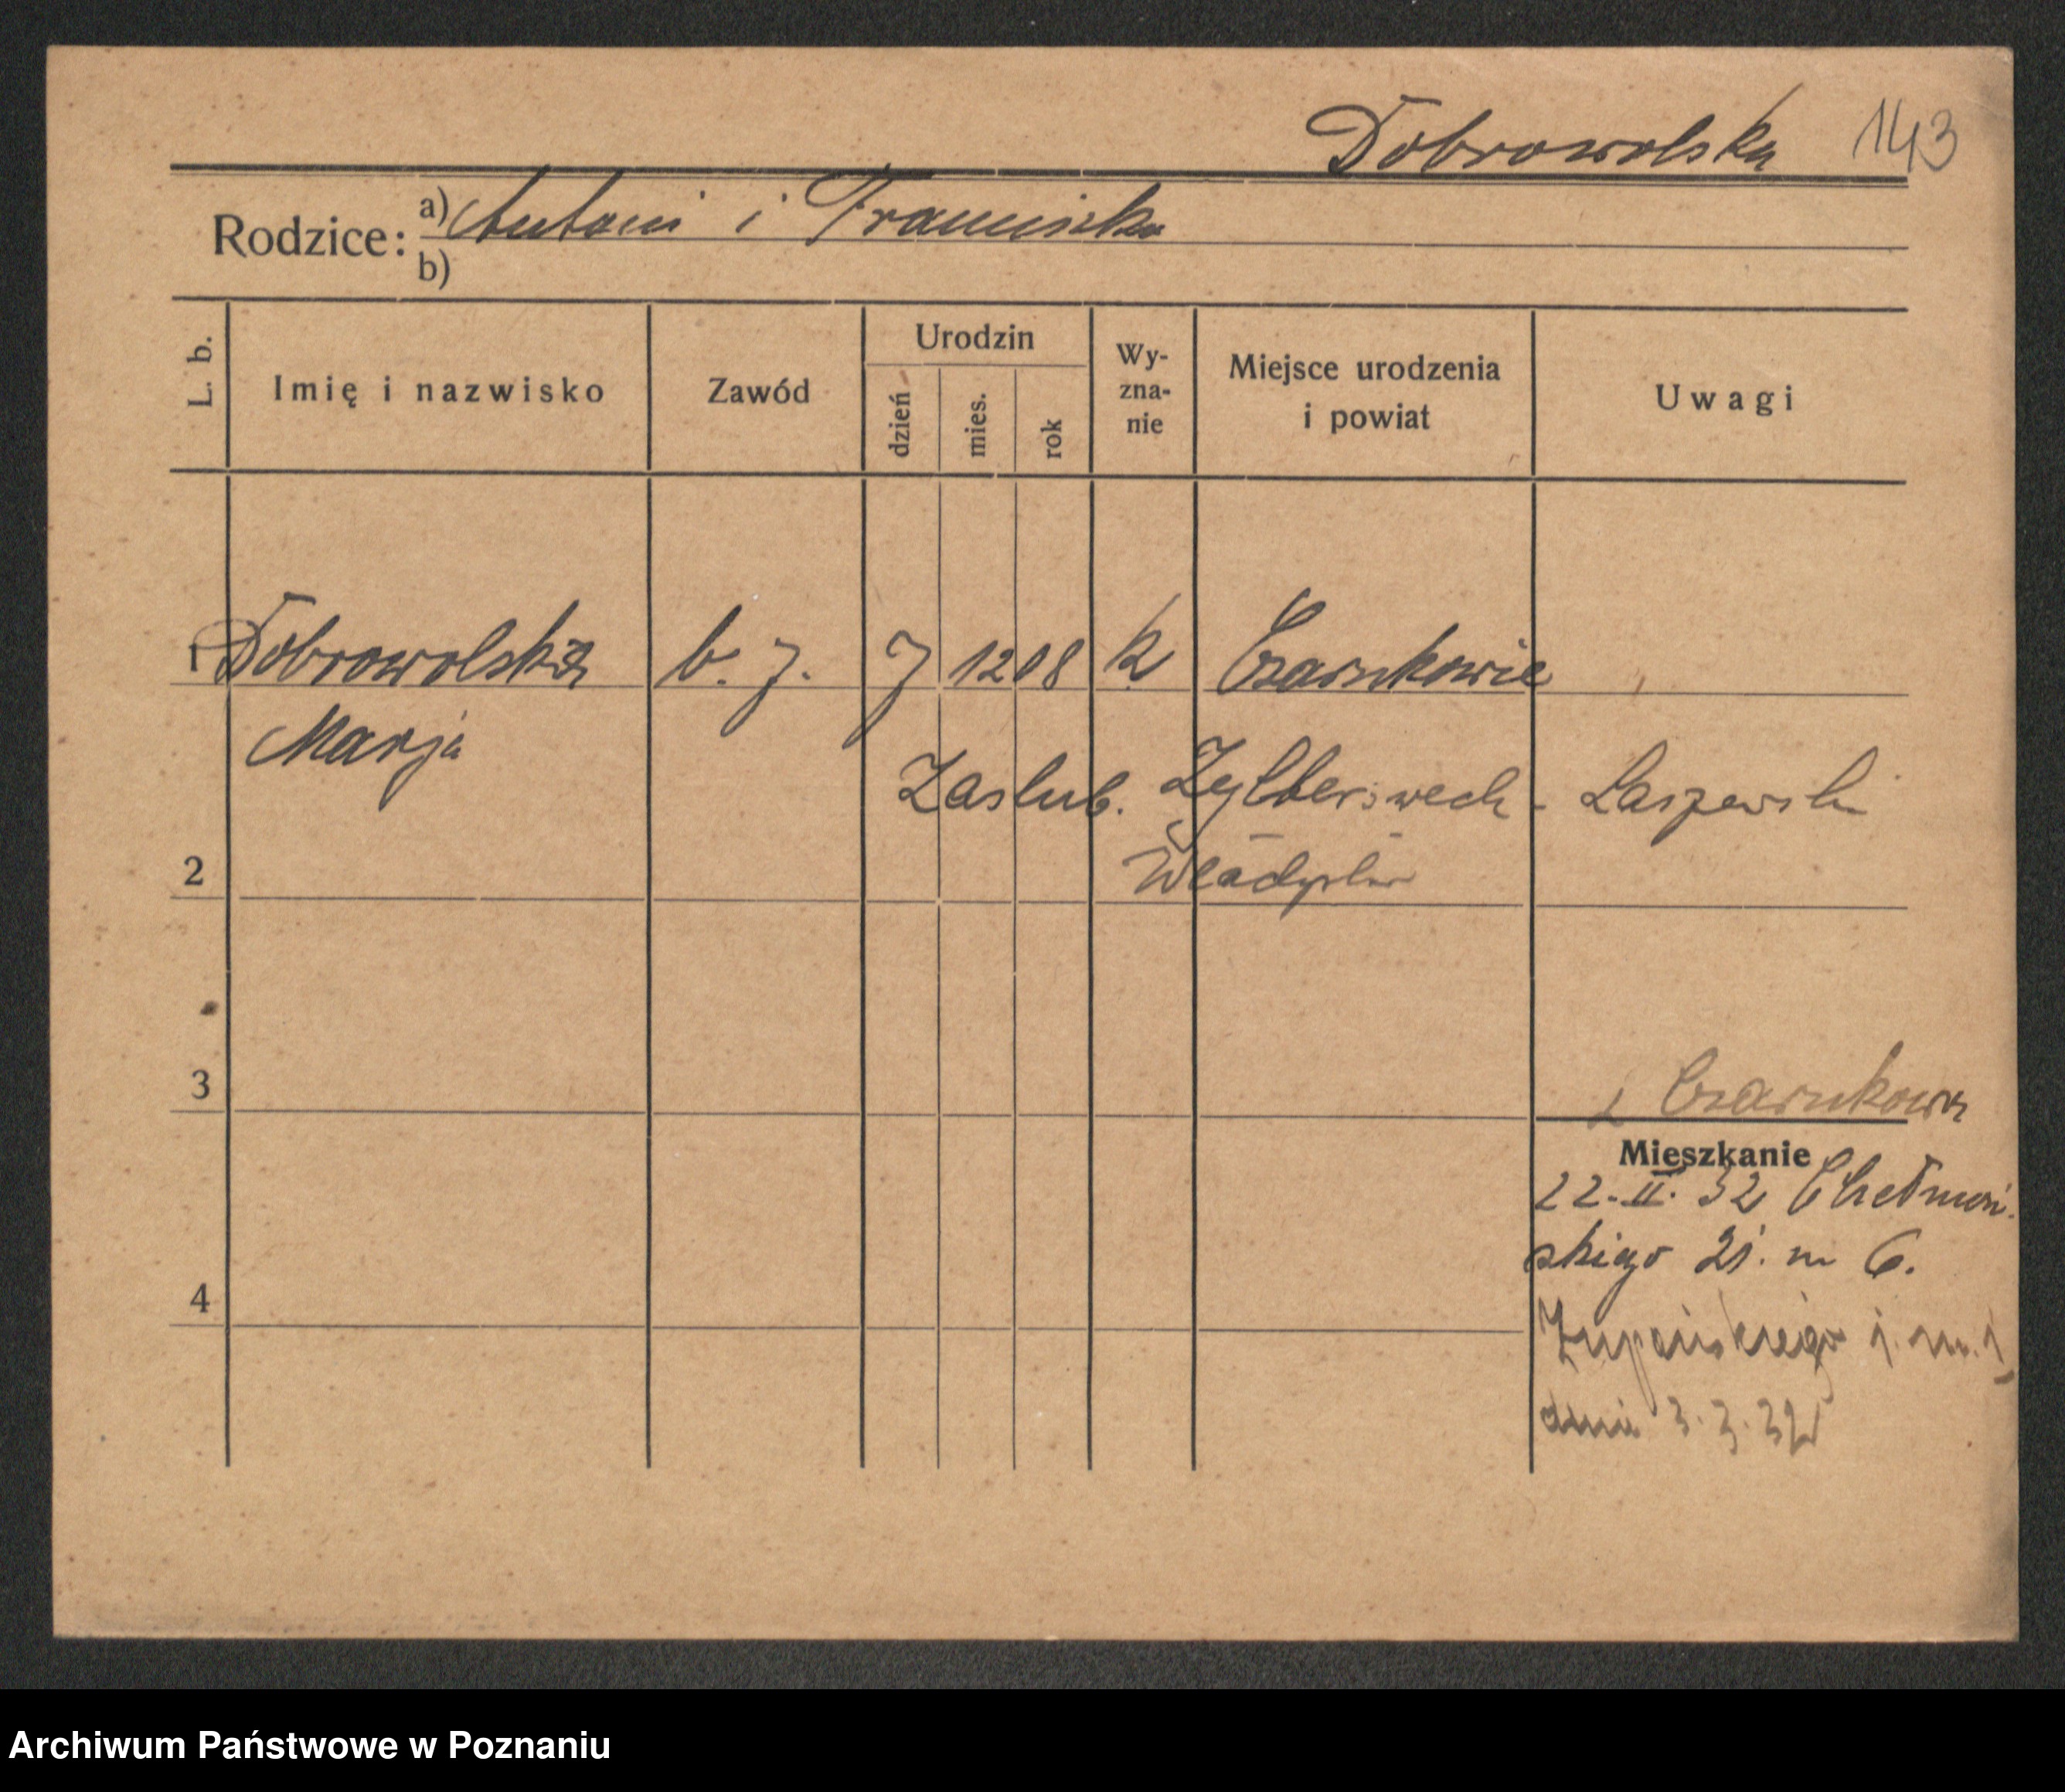 Dobrowolska 143
Rodzice: a) Antoni i Franciszka
b)
L. b.
Imię i nazwisko
Zawód
Urodzin
dzień
mies.
rok
Wy-
zna-
nie
Miejsce urodzenia
i powiat
Uwagi
1 Dobrowolska b. z. 7 12 08 k Czarnkowie
Marja
Zaslub. Laszewski
Władysław
2
3
z Czarnkowa
Mieszkanie
22-II. 32 Chełmoń.
skiego 21. m 6.
4
Żupańskiego 1. m. 1
dnia 3.3.32
Archiwum Państwowe w Poznaniu